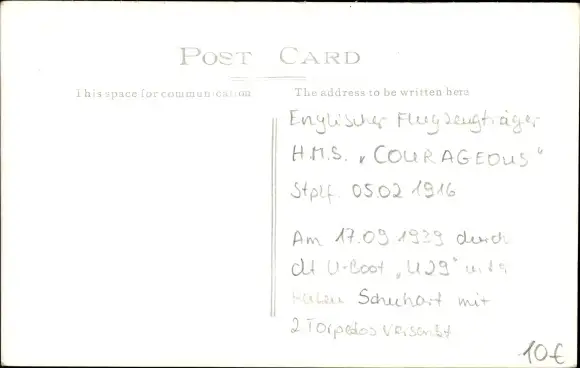 POST CARD
This space for communication
The address to be written here
Englischer Flugzeugträger
H.M.S. „COURAGEOUS“
Stplf. 05.02 1916
Am 17.09 1939 durch
dt U-Boot „U29“ unter
Schuhart mit
2 Torpedos versenkt
10€